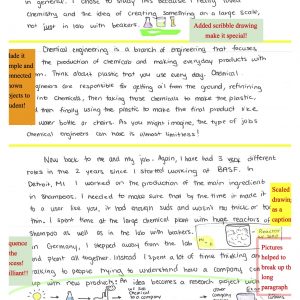 in general. I chose to study this because I really loved
chemistry and the idea of creating something on a large scale,
not just in lab with beakers.
Added scribble drawing
make it special!
Chemical engineering is a branch of engineering that focuses
the production of chemicals and making everyday products with
Think about plastic that you use every day. Chemical
Engineers are responsible for getting oil from the ground, refining
into chemicals, then taking those chemicals to make the plastic,
then finally using the plastic to make the final product like
water bottle or chairs. As you might imagine, the type of jobs
chemical engineers can have is almost limitless!
ade it
mple and
onnected
own
bjects to
udent!
Now back to me and my job. Again, I have had 3 very different
roles in the 2 years since I started working at BASF. In
Detroit, MI I worked on the production of the main ingredient
in shampoos. I needed to make sure that by the time it made it
to a user like you, it had enough suds and wasn't too thick or
thin. I spent time at the large chemical plant with huge reactors of
shampoo as well as in the lab with beakers.
in Germany, I stepped away from the lab
and plant all together. Instead I spent a lot of time thinking an
talking to people trying to understand how a company, coul
up with new products. An idea becomes a research project with
Scaled
drawin
as a
caption
Pictures
helped to
break up th
long
paragraph
equence
scent
illiant!!
Me
Reactor